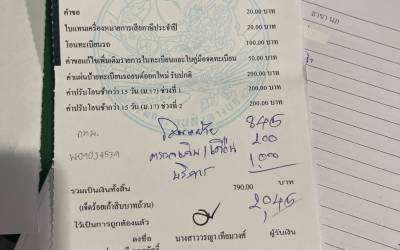 สาขา นภ
ค่าขอ 20.00 บาท
ใบแทนเครื่องหมายการเสียภาษีประจำปี 20.00 บาท
โอนทะเบียนรถ 100.00 บาท
ค่าขอแก้ไขเพิ่มเติมรายการในทะเบียนและใบคู่มือจดทะเบียน 50.00 บาท
ค่าแผ่นป้ายทะเบียนรถถอนต์ออกใหม่ รับปกติ 200.00 บาท
ค่าปรับโอนช้ากว่า 15 วัน (ม.17) ช่วงที่ 1 200.00 บาท
ค่าปรับโอนช้ากว่า 15 วัน (ม.17) ช่วงที่ 2 200.00 บาท
กทม. 845
200
บริการ 1,00
รวมเป็นเงินทั้งสิ้น 790.00 บาท
(เจ็ดร้อยเก้าสิบบาทถ้วน) 2,045
ไว้เป็นการถูกต้องแล้ว
ลงชื่อ ผู้รับเงิน
นางสาววรญา เทียมวงศ์